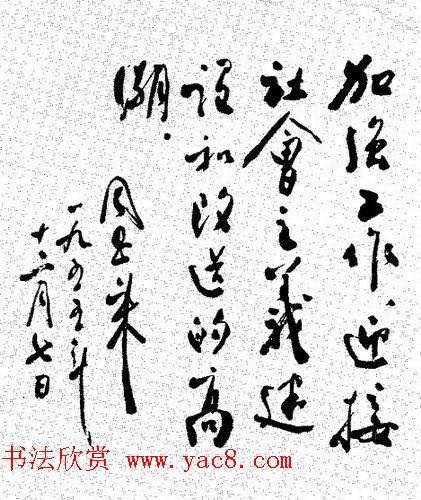 加强工作,迎接
社會主義建
设和改造的高
潮.
周恩来
一九五五年
十二月七日
书法欣赏 www.yac8.com